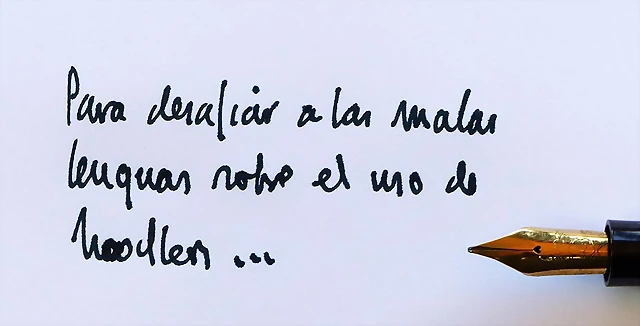 Para desafiar a las malas
lenguas sobre el uso de
Noodlers ...